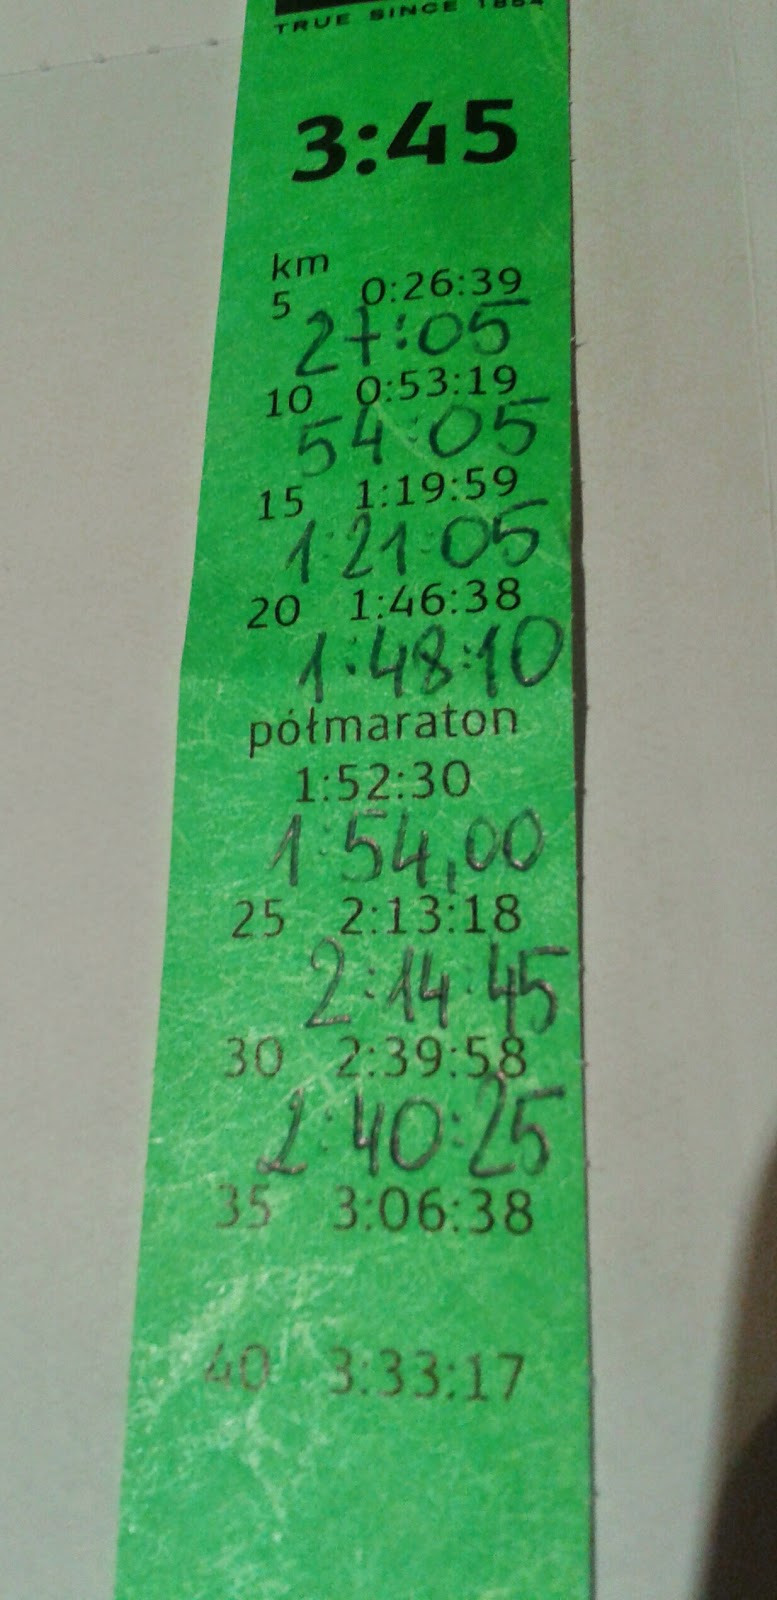 TRUE SINCE 1854
3:45
km
5 0:26:39
27:05
10 0:53:19
54:05
15 1:19:59
1:21:05
20 1:46:38
1:48:10
półmaraton
1:52:30
1:54,00
25 2:13:18
2:14:45
30 2:39:58
2:40:25
35 3:06:38
40 3:33:17